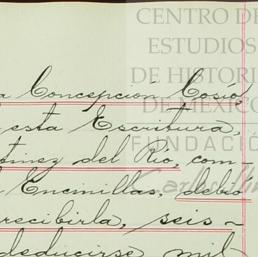 CENTRO DE
ESTUDIOS
DE HISTORI
DE MÉXICO
FUNDACIÓ
a Concepción Cosío,
esta Escritura,
del Rio, com-
Encinillas, debió
recibirla, seis-
deducirse mil